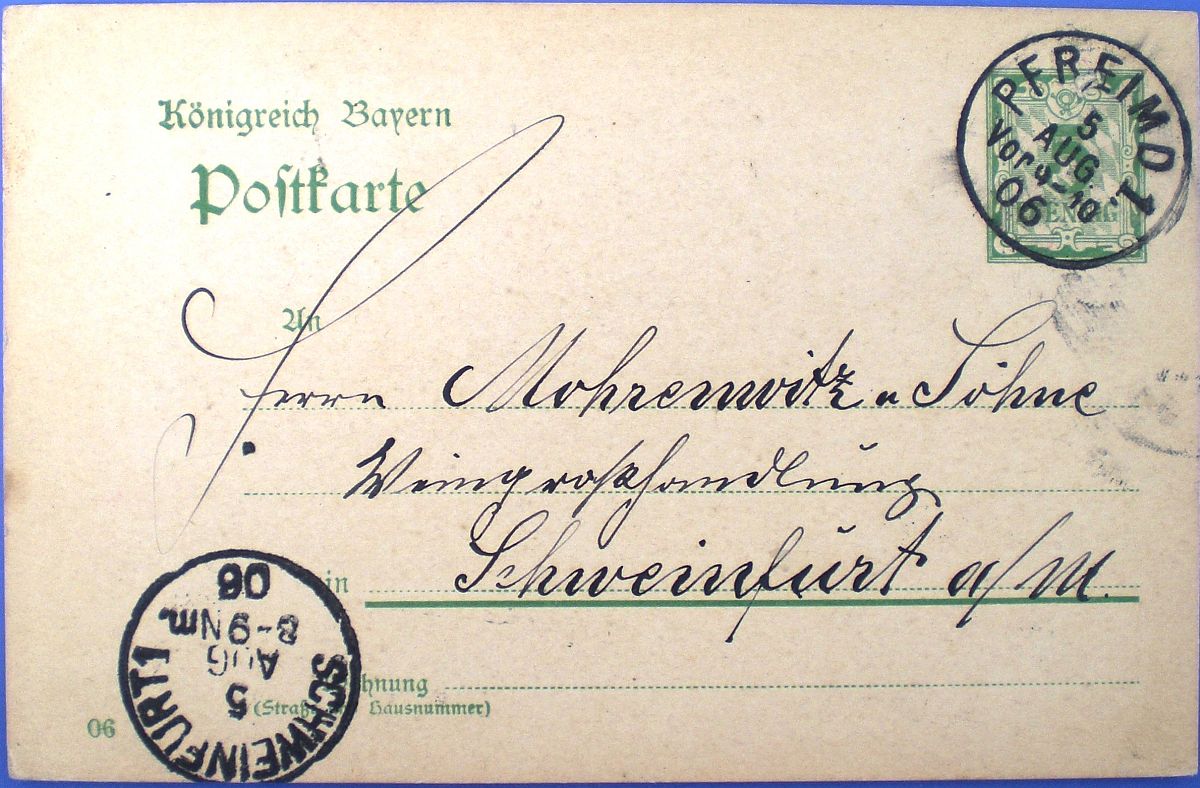 Königreich Bayern
Postkarte
PFREIMD 1.
5
AUG
Vor 9-10
06
5
PFENNIG
An
Herrn Mohrenwitz u Söhne
Weingroßhandlung
in Schweinfurt a/M.
SCHWEINFURT 1
5
AUG
8-9 Nm.
06
hnung
(Straße Hausnummer)
06